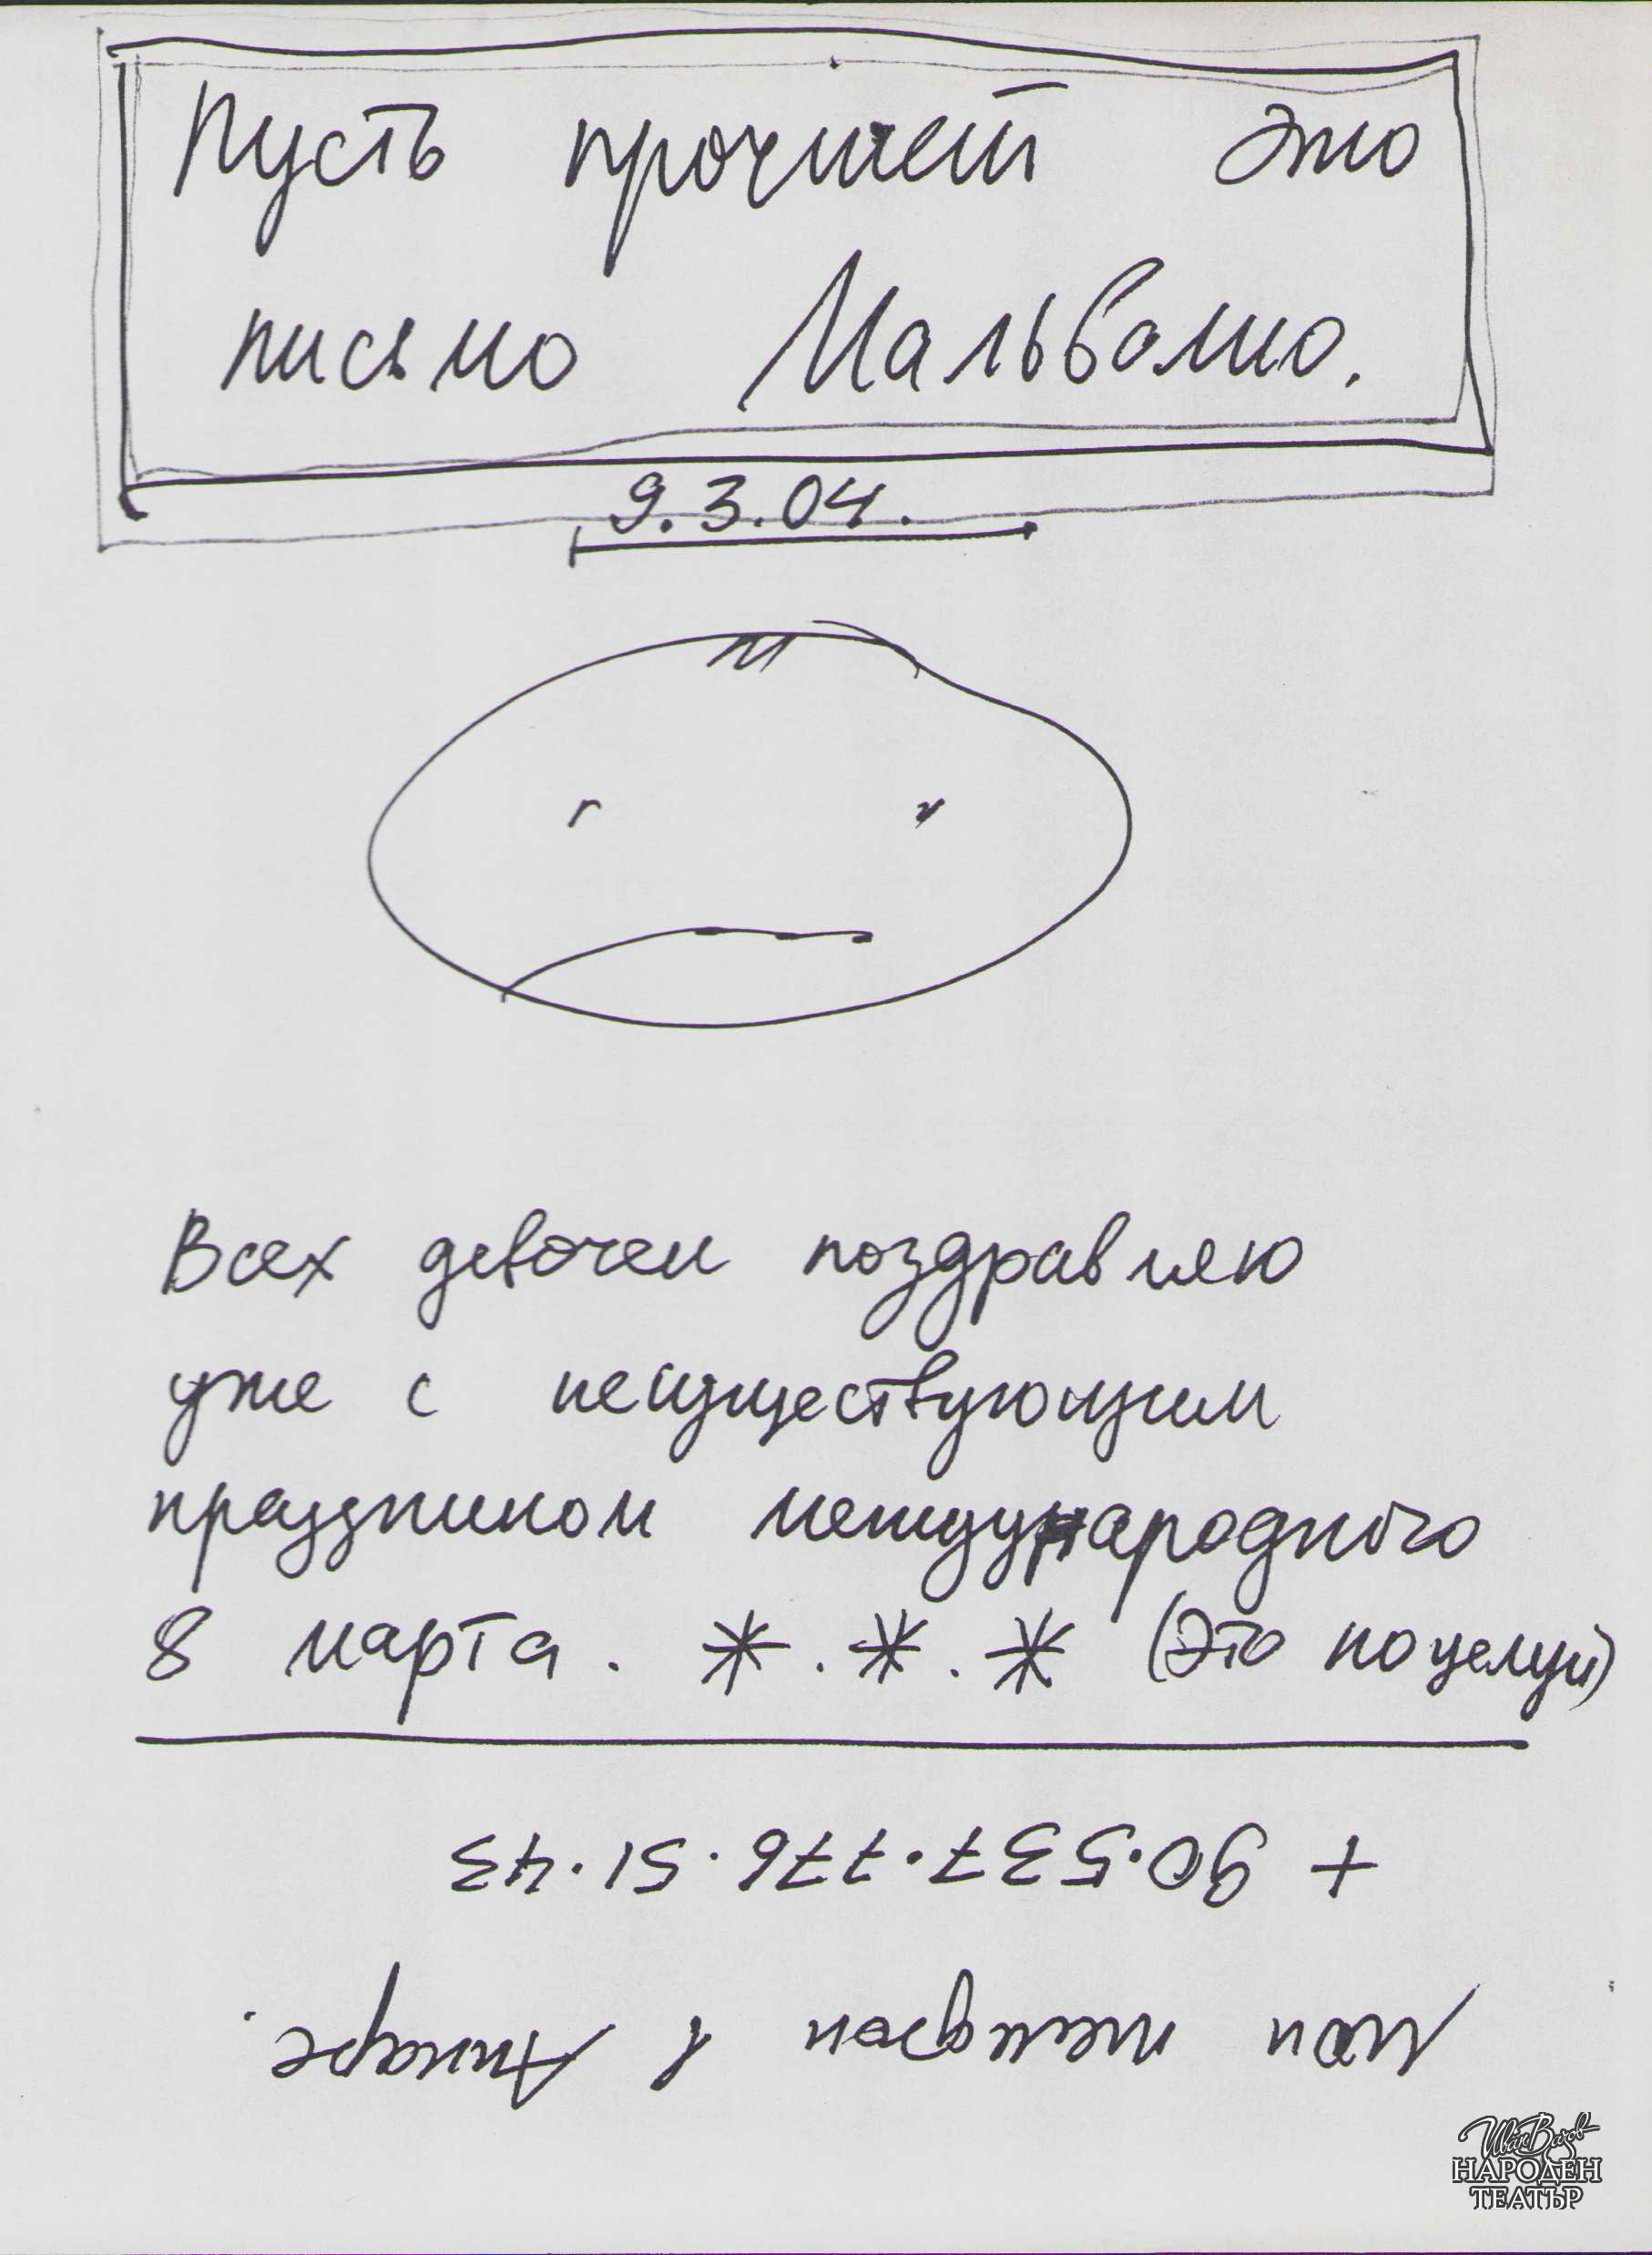 Пусть прочтет это
письмо Мальволио.
9.3.04.
Всех девочек поздравляю
уже с несуществующим
праздником международного
8 марта. * . * . * (Это поцелуи)
Мой телефон в Анкаре.
+ 90.537.776.51.43
Иван Вазов
НАРОДЕН
ТЕАТЪР